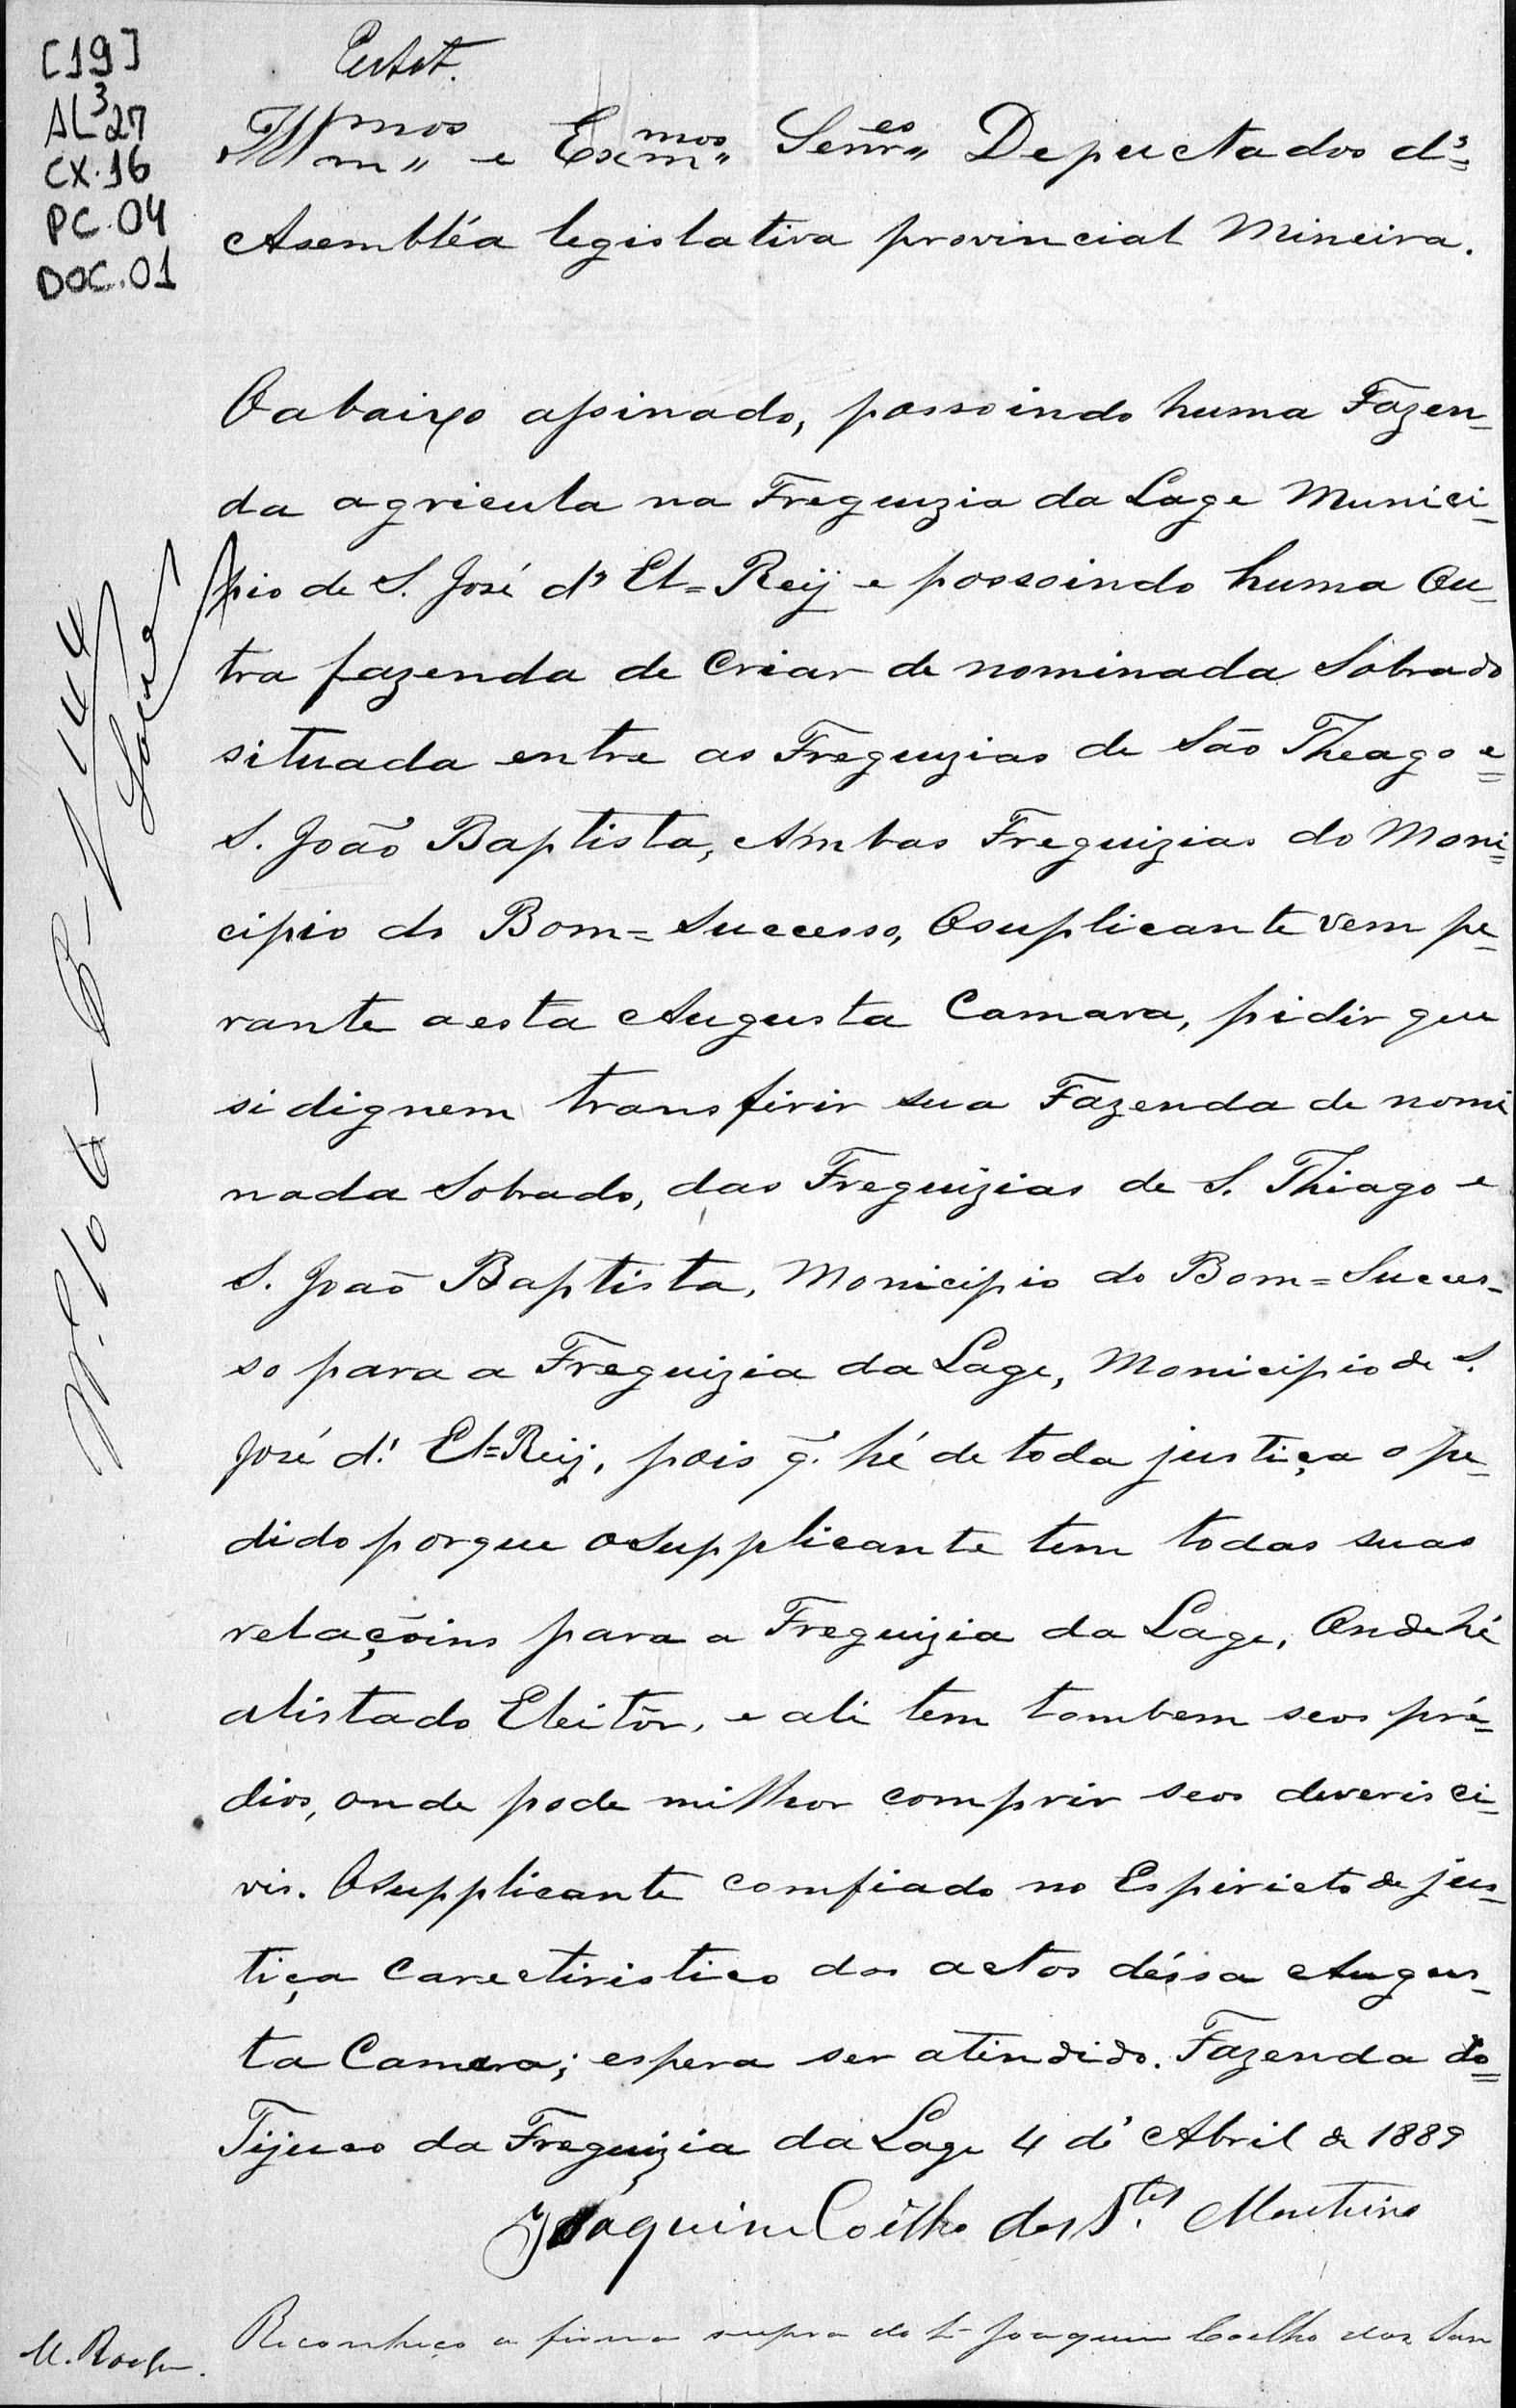 [19]
AL³27
CX.16
PC.04
DOC.01
Estat.
Illmos e Exmos Senres Depuctados d'
Asembléa legislativa provincial Mineira.
O abaixo assinado, possoindo huma Fazen=
da agricula na Freguizia da Lage Munici=
pio de S. José d' El=Reij e possoindo huma Ou=
tra fazenda de Criar de nominada Sobrado
situada entre as Freguizias de São Theago e
S. João Baptista, Ambas Freguizias do Moni=
cipio do Bom=Successo, Osuplicante vem pe=
rante a esta Augusta Camara, pidir que
si dignem transfirir sua Fazenda de nomi
nada Sobrado, das Freguizias de S. Thiago e
S. João Baptista, Monicipio do Bom=Succes-
so para a Freguizia da Lage, Monicipio de S.
José d' El=Reij, pois q̃. hé de toda justiça o pe=
dido porque oSupplicante tem todas suas
relaçõins para a Freguizia da Lage, Onde hé
alistado Eleitôr, e ali tem tambem seos pré=
dios, onde pode milhor comprir seos deveris ci=
vis. OSupplicante comfiado no Espiricto de jus=
tiça Carectiristico dos actos déssa Augus=
ta Camara; espera ser atindido. Fazenda do
Tijuco da Freguizia da Lage 4 d' Abril de 1889
Joaquim Coêlho dos S.tos Monteiro
Reconheço a firma supra do Sr Joaquim Coelho dos San
M. Rocha.